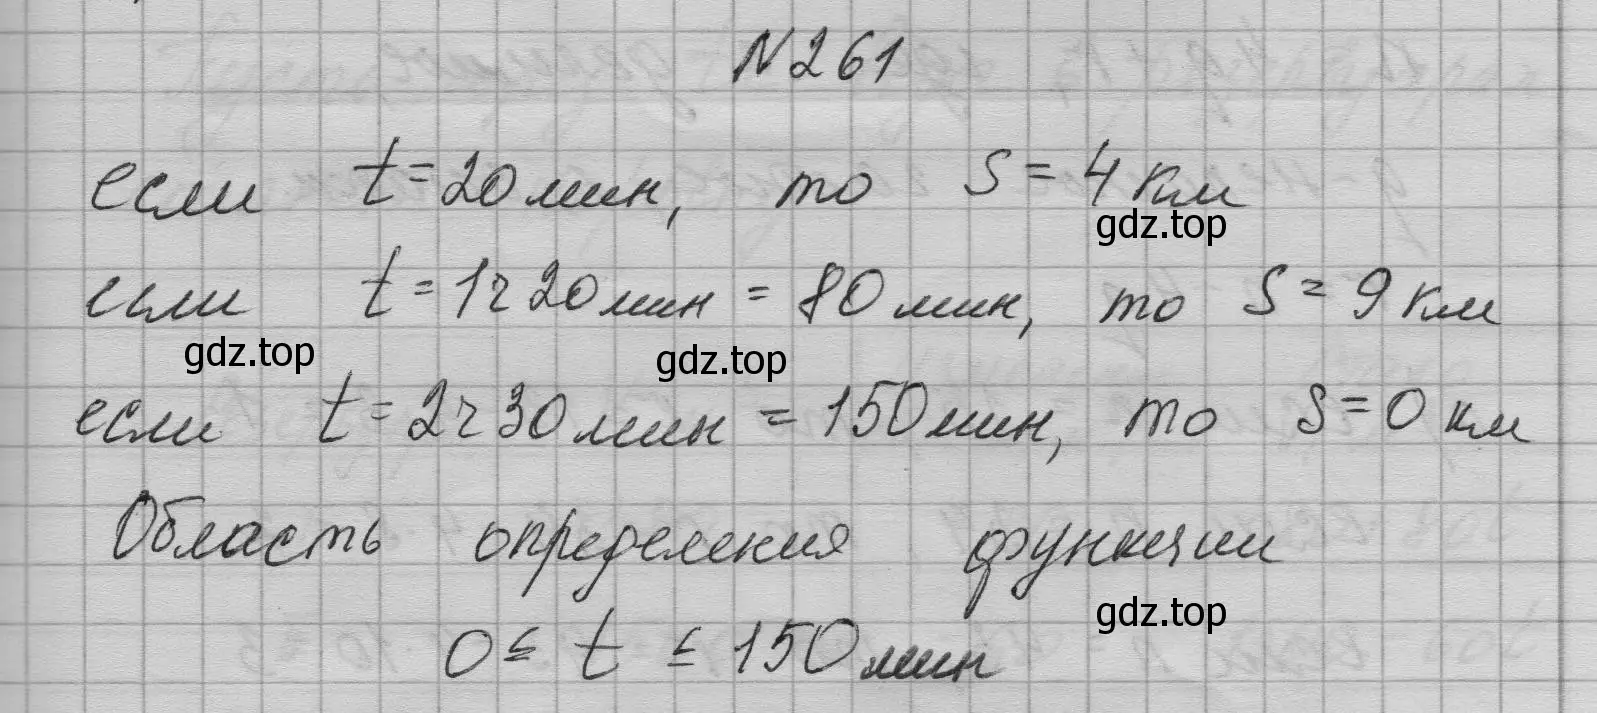 N 261
если t = 20 мин, то S = 4 км
gdz.top
если t = 1 ч 20 мин = 80 мин, то S = 9 км
gdz.top gdz.top
если t = 2 ч 30 мин = 150 мин, то S = 0 км
Область определения функции
gdz.top
0 ≤ t ≤ 150 мин